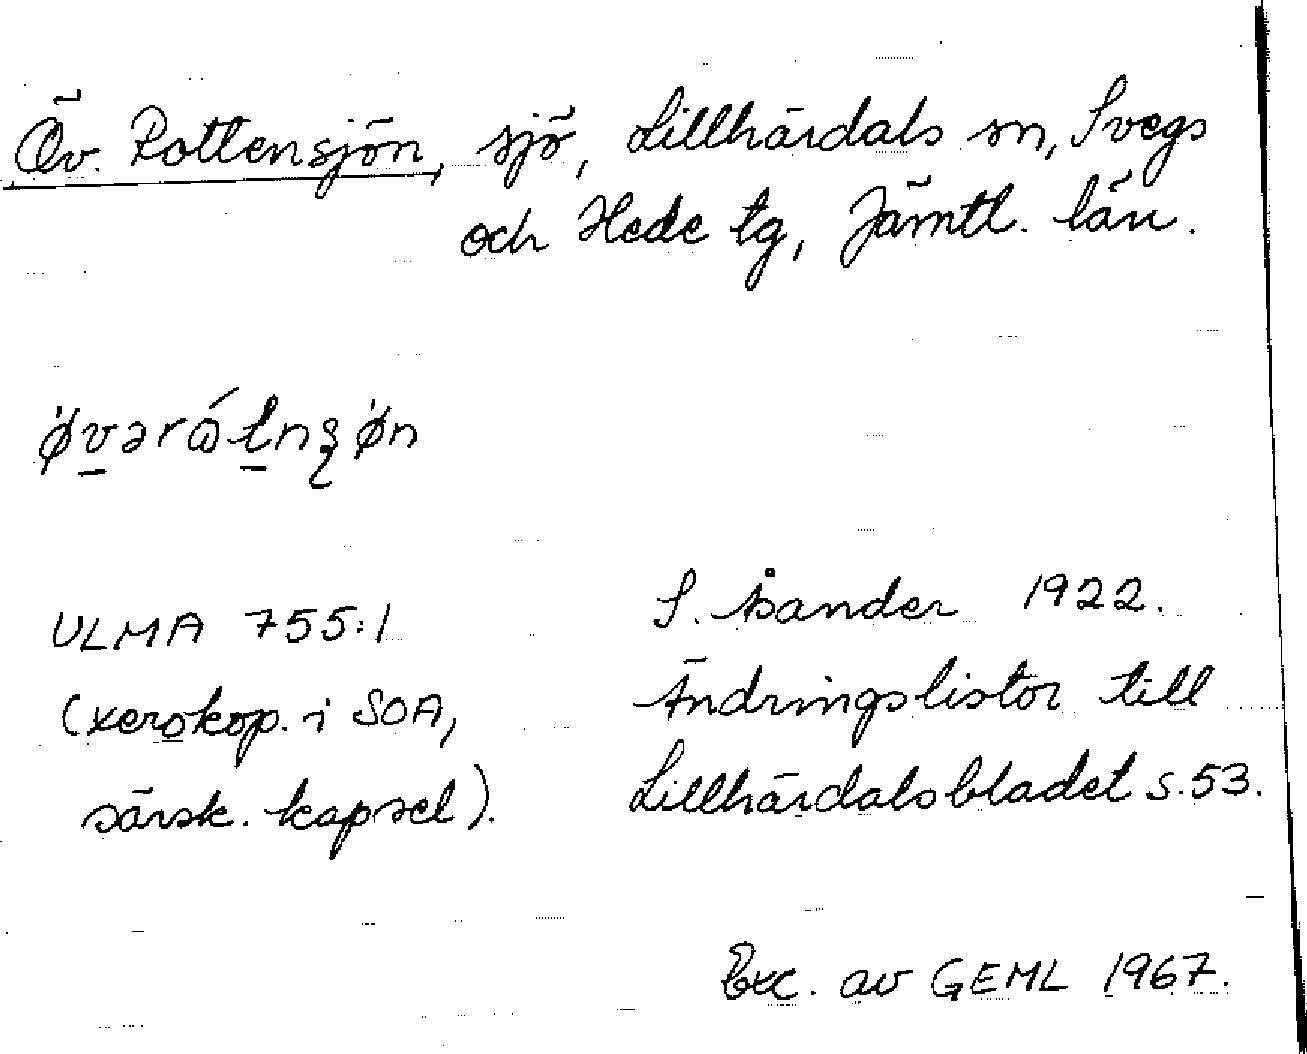 Öv. Rottensjön, sjö, Lillhärdals sn, Svegs
och Hede tg, Jämtl. län.
øvərátnʂøn
ULMA 755:1
S. Åsander 1922.
(xerokop. i SOA,
Ändringslistor till
särsk. kapsel).
Lillhärdalsbladet s. 53.
Exc. av GEML 1967.